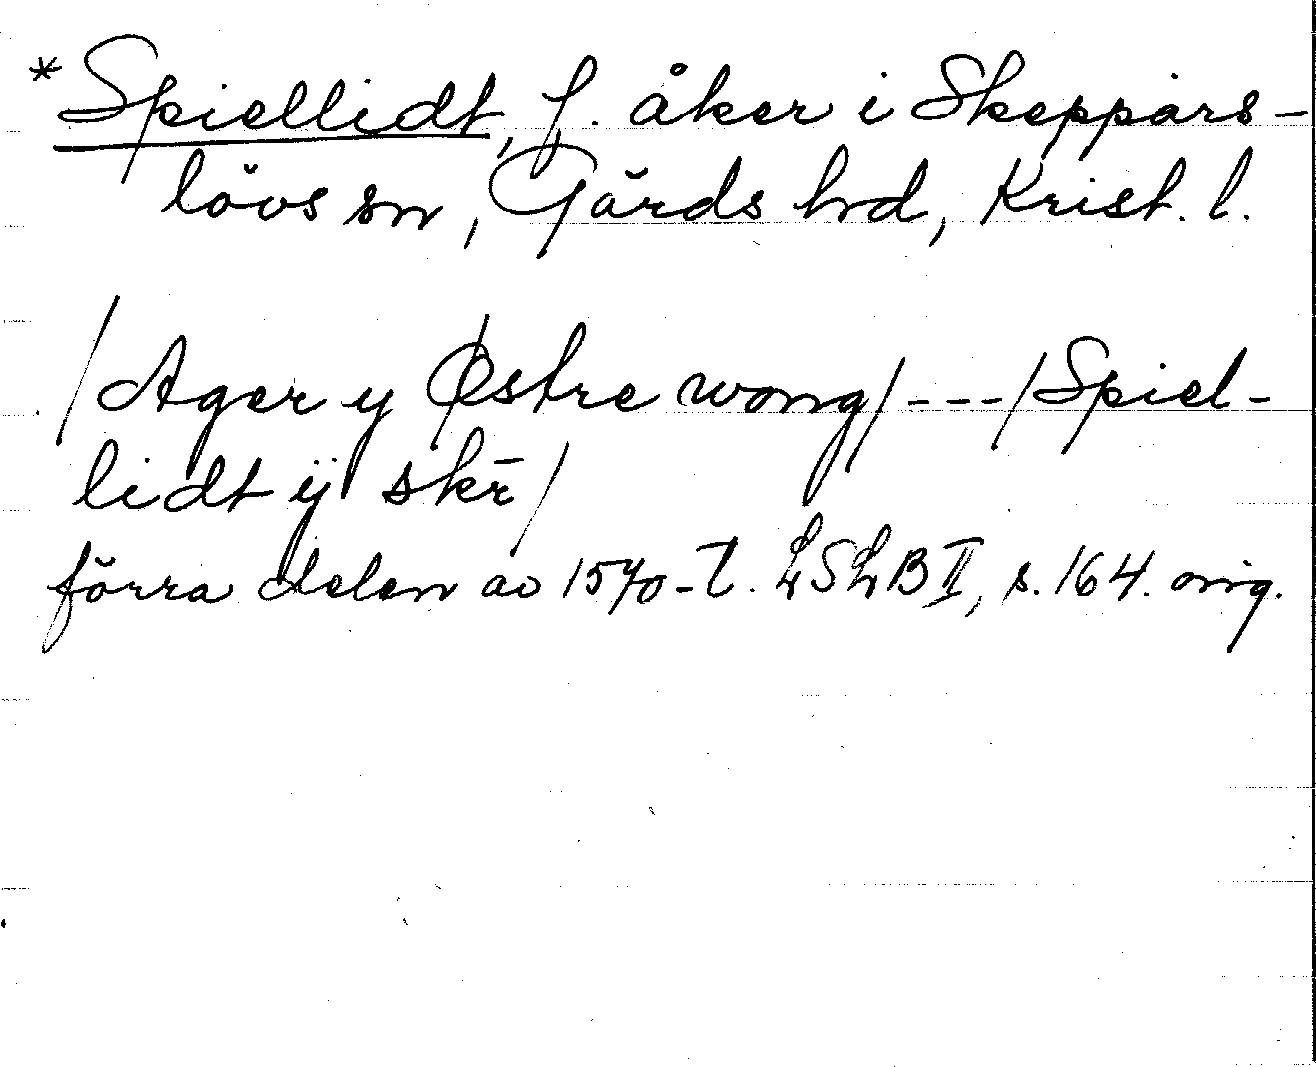 *Spiellidt, f. åker i Skeppars-
lövs sn, Gärds hrd, Krist. l.
/Ager y Østre wong/ --- /Spiel-
lidt ÿ skr̄/
förra delen av 1570-t. LSLB II, s. 164. orig.